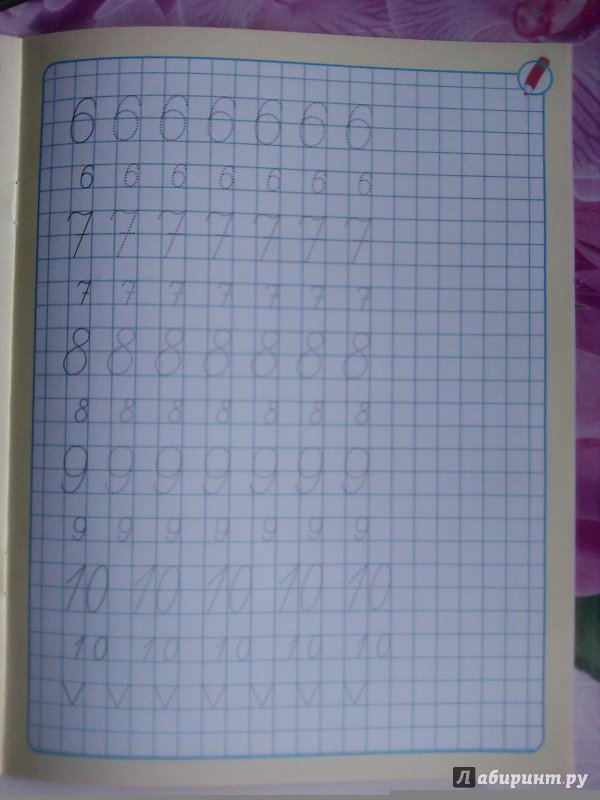 6 6 6 6 6 6 6
6 6 6 6 6 6 6
7 7 7 7 7 7 7
7 7 7 7 7 7 7
8 8 8 8 8 8 8
8 8 8 8 8 8 8
9 9 9 9 9 9 9
9 9 9 9 9 9 9
10 10 10 10 10
10 10 10 10 10
V V V V V V V
Лабиринт.ру